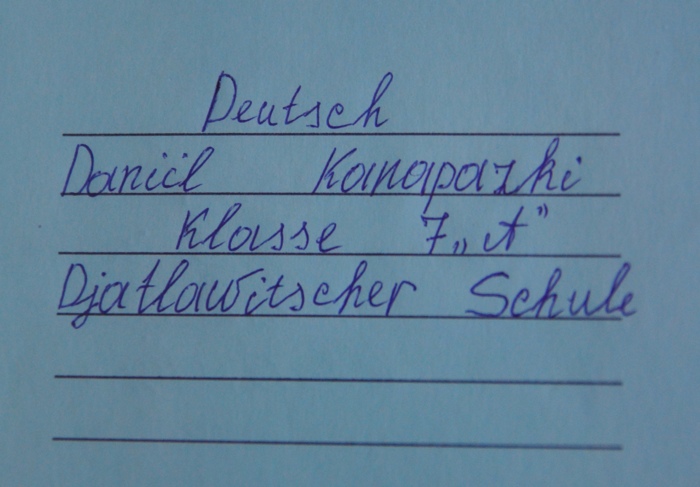 Deutsch
Daniil Kanapazki
Klasse 7 „A”
Djatlawitscher Schule